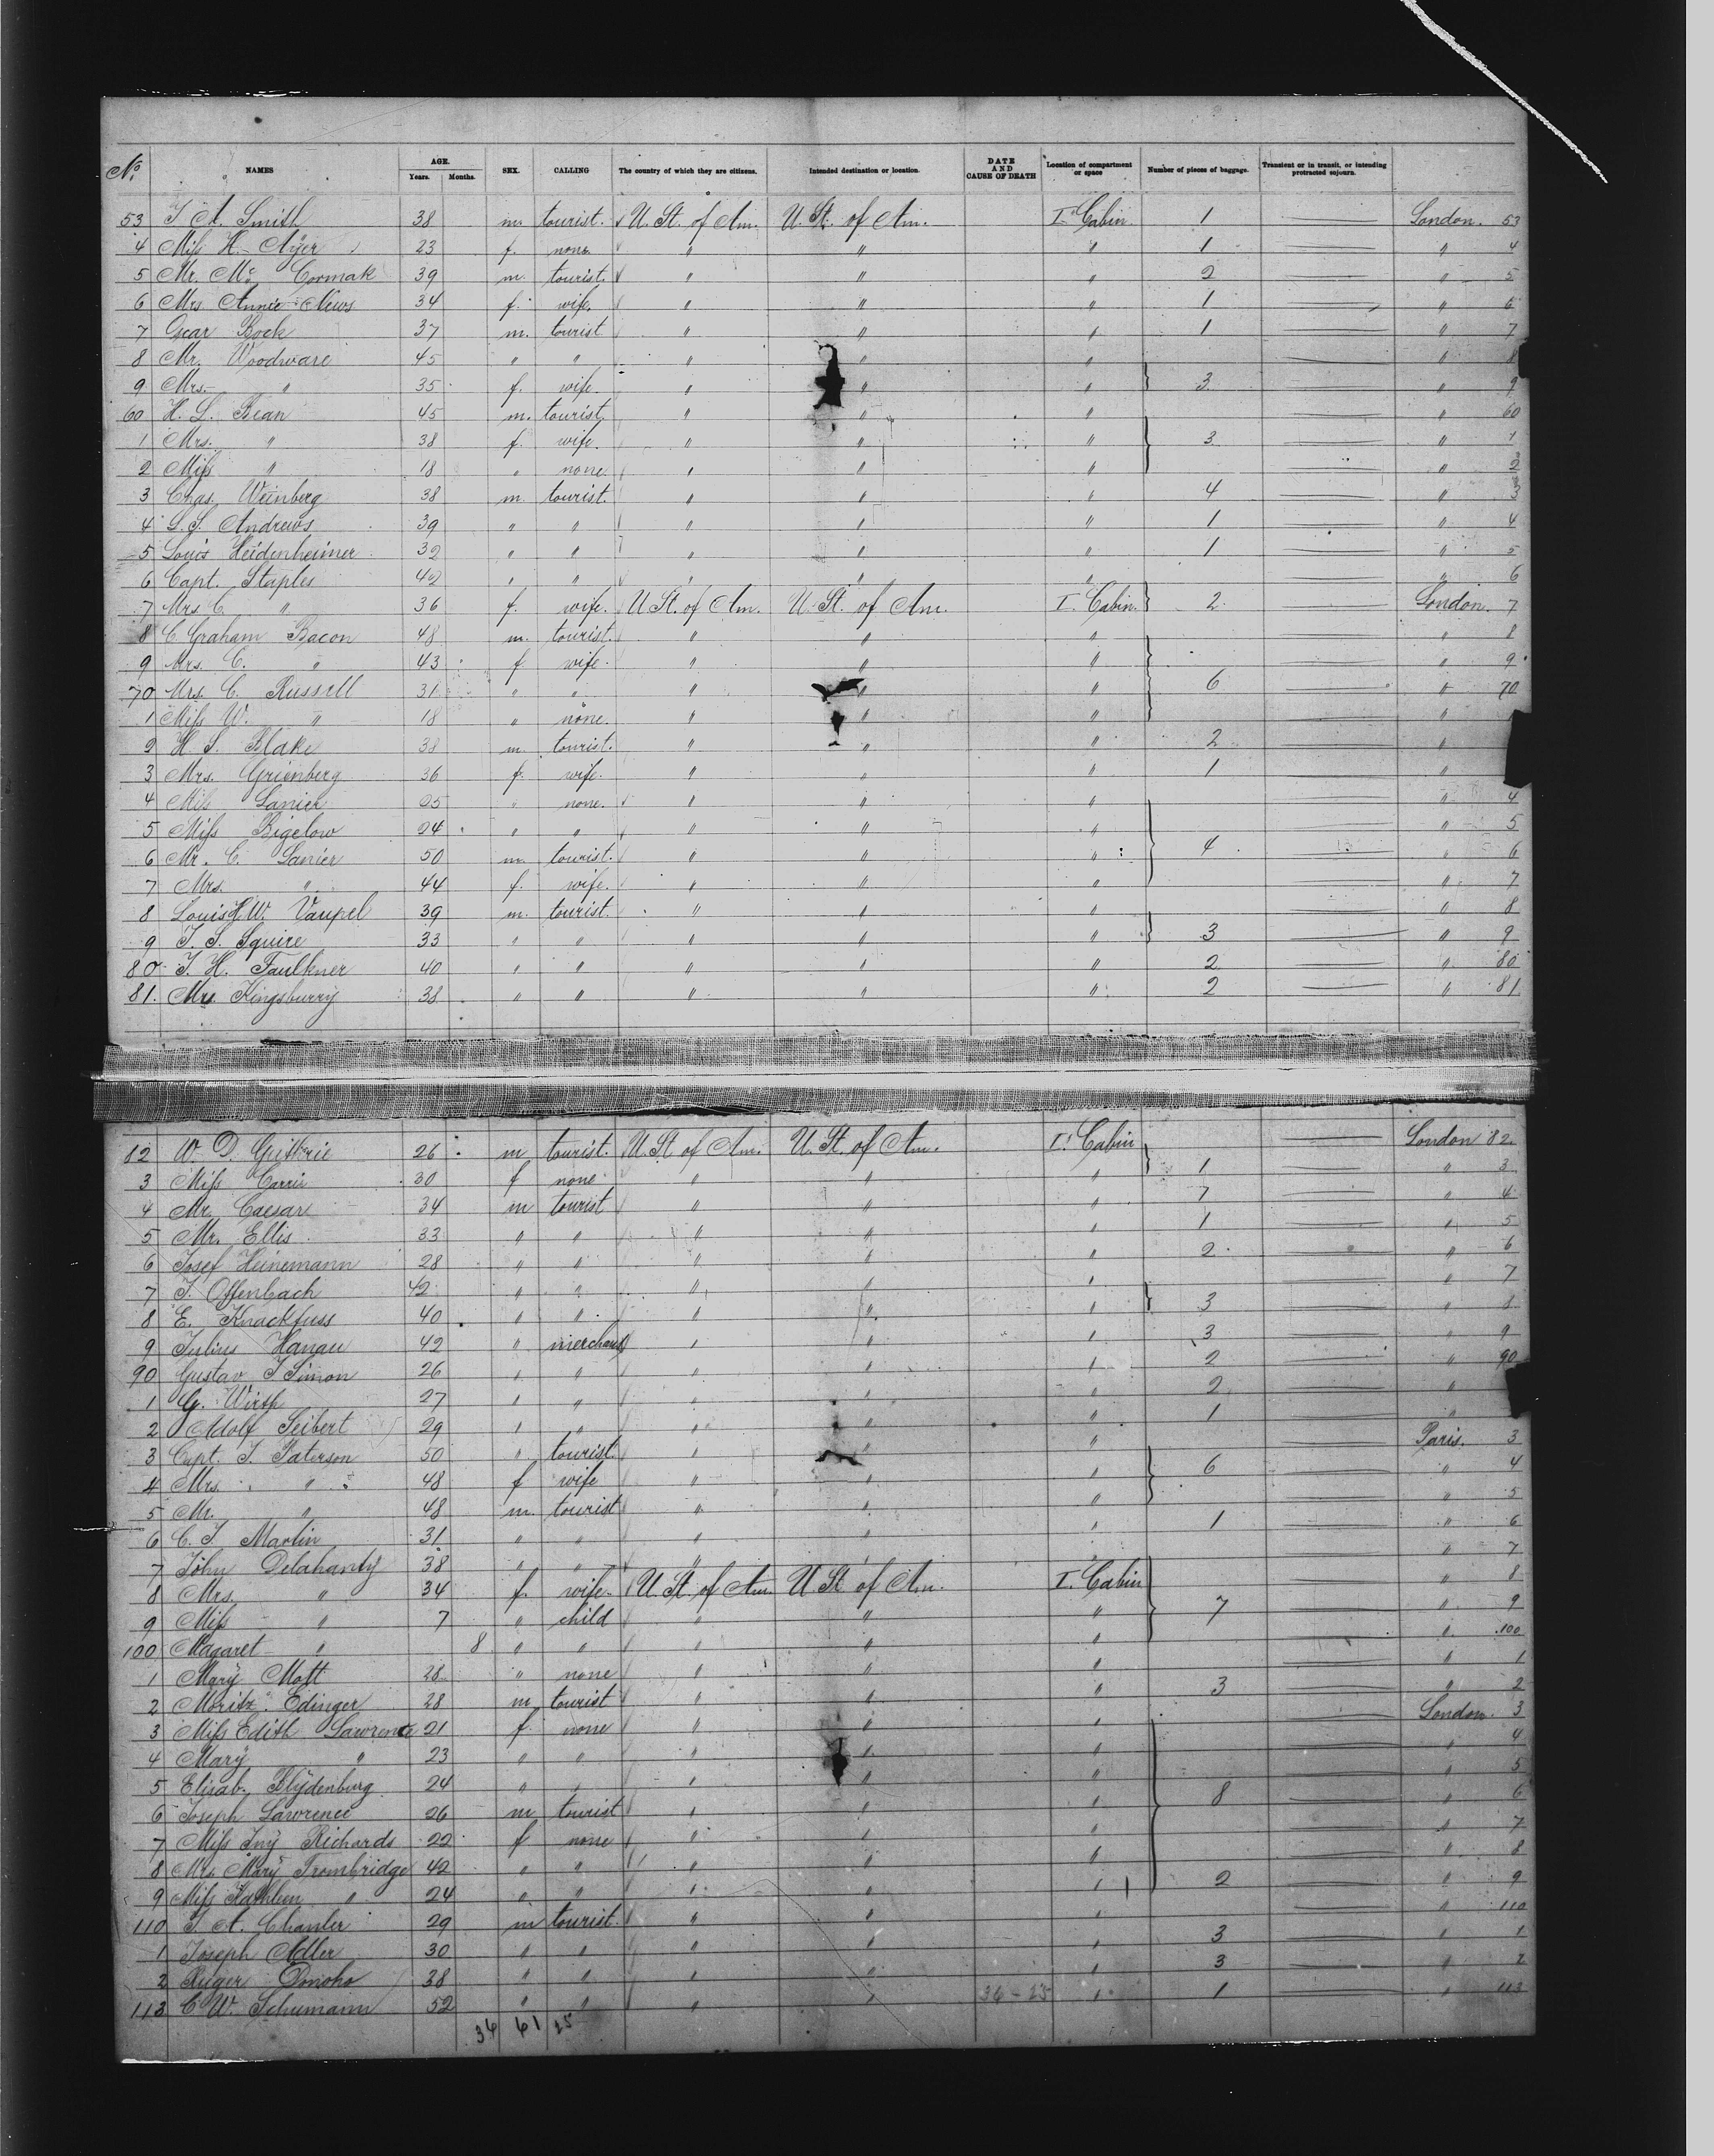 No. NAMES AGE. Years. Months. SEX. CALLING The country of which they are citizens. Intended destination or location. DATE AND CAUSE OF DEATH Location of compartment or space Number of pieces of baggage. Transient or in transit, or intending protracted sojourn.
53 J. A. Smith 38 m. tourist. U. St. of Am. U. St. of Am. I. Cabin. 1 London. 53
4 Miss H. Ayer 23 f. none. " " " 1 " 4
5 Mr. Mc. Cormak 39 m. tourist. " " " 2 " 5
6 Mrs. Annie News 34 f. wife. " " " 1 " 6
7 Oscar Bock 37 m. tourist " " " 1 " 7
8 Mr. Woodware 45 " " " " " " 8
9 Mrs. " 35 f. wife. " " " 3 " 9
60 H. L. Bean 45 m. tourist. " " " " 60
1 Mrs. " 38 f. wife. " " " 3 " 1
2 Miss " 18 " none " " " " 2
3 Chas. Weinberg 38 m. tourist. " " " 4 " 3
4 L. S. Andrews 39 " " " " " 1 " 4
5 Louis Heidenheimer 32 " " " " " 1 " 5
6 Capt. Staples 42 " " " " " " 6
7 Mrs. C. " 36 f. wife. U. St. of Am. U. St. of Am. I. Cabin. 2 London. 7
8 C. Graham Bacon 48 m. tourist. " " " " 8
9 Mrs. C. " 43 f. wife. " " " " 9
70 Mrs. C. Russell 31 " " " " " 6 " 70
1 Miss W. " 18 " none. " " " "
2 H. S. Blake 38 m. tourist. " " " 2 "
3 Mrs. Grienberg 36 f. wife. " " " 1 "
4 Miss Lanier 25 " none. " " " " 4
5 Miss Bigelow 24 " " " " " " 5
6 Mr. C. Lanier 50 m. tourist. " " " 4 " 6
7 Mrs. " 44 f. wife. " " " " 7
8 Louis H. W. Vaupel 39 m. tourist. " " " " 8
9 J. S. Squire 33 " " " " " 3 " 9
80 J. H. Faulkner 40 " " " " " 2 " 80
81. Mrs. Kingsburry 38 " " " " " 2 " 81
82 W. D. 26 m tourist. U. St. of Am. U. St. of Am. I. Cabin London 82
3 Miss Carrie 30 f none " " " 1 " 3
4 Mr. Caesar 34 m tourist " " " 7 " 4
5 Mr. Ellis 33 " " " " " 1 " 5
6 Josef Heinemann 28 " " " " " 2 " 6
7 J. Offenbach 42 " " " " " " 7
8 E. Knackfuss 40 " " " " " 3 " 8
9 Julius Hanau 42 " merchant " " " 3 " 9
90 Gustav J. Simon 26 " " " " " 2 " 90
1 G. Wirth 27 " " " " " 2 "
2 Adolf Seibert 29 " " " " " 1 "
3 Capt. J. Paterson 50 " tourist. " " " Paris. 3
4 Mrs. " 48 f wife " " " 6 " 4
5 Mr. " 48 m. tourist " " " " 5
6 C. J. Martin 31 " " " " " 1 " 6
7 John Delahanty 38 " " " " " " 7
8 Mrs. " 34 f. wife. U. St. of Am. U. St. of Am. I. Cabin " 8
9 Miss " 7 " child " " " 7 " 9
100 Magaret " 8 " " " " " " 100
1 Mary Mott 28 " none " " " " 1
2 Moritz Edinger 28 m tourist " " " 3 " 2
3 Miss Edith Lawrence 21 f none " " " London. 3
4 Mary " 23 " " " " " " 4
5 Elisab. Blydenburg 24 " " " " " " 5
6 Joseph Lawrence 26 m tourist " " " 8 " 6
7 Miss Richards 22 f none " " " " 7
8 Mrs. Mary Trombridge 42 " " " " " " 8
9 Miss Kathleen " 24 " " " " " 2 " 9
110 J. A. Chanler 29 m tourist. " " " " 110
1 Joseph Adler 30 " " " " " 3 " 1
2 38 " " " " " 3 " 2
113 C. W. Schumann 52 " " " " 36-25 " 1 " 113
36 61 25